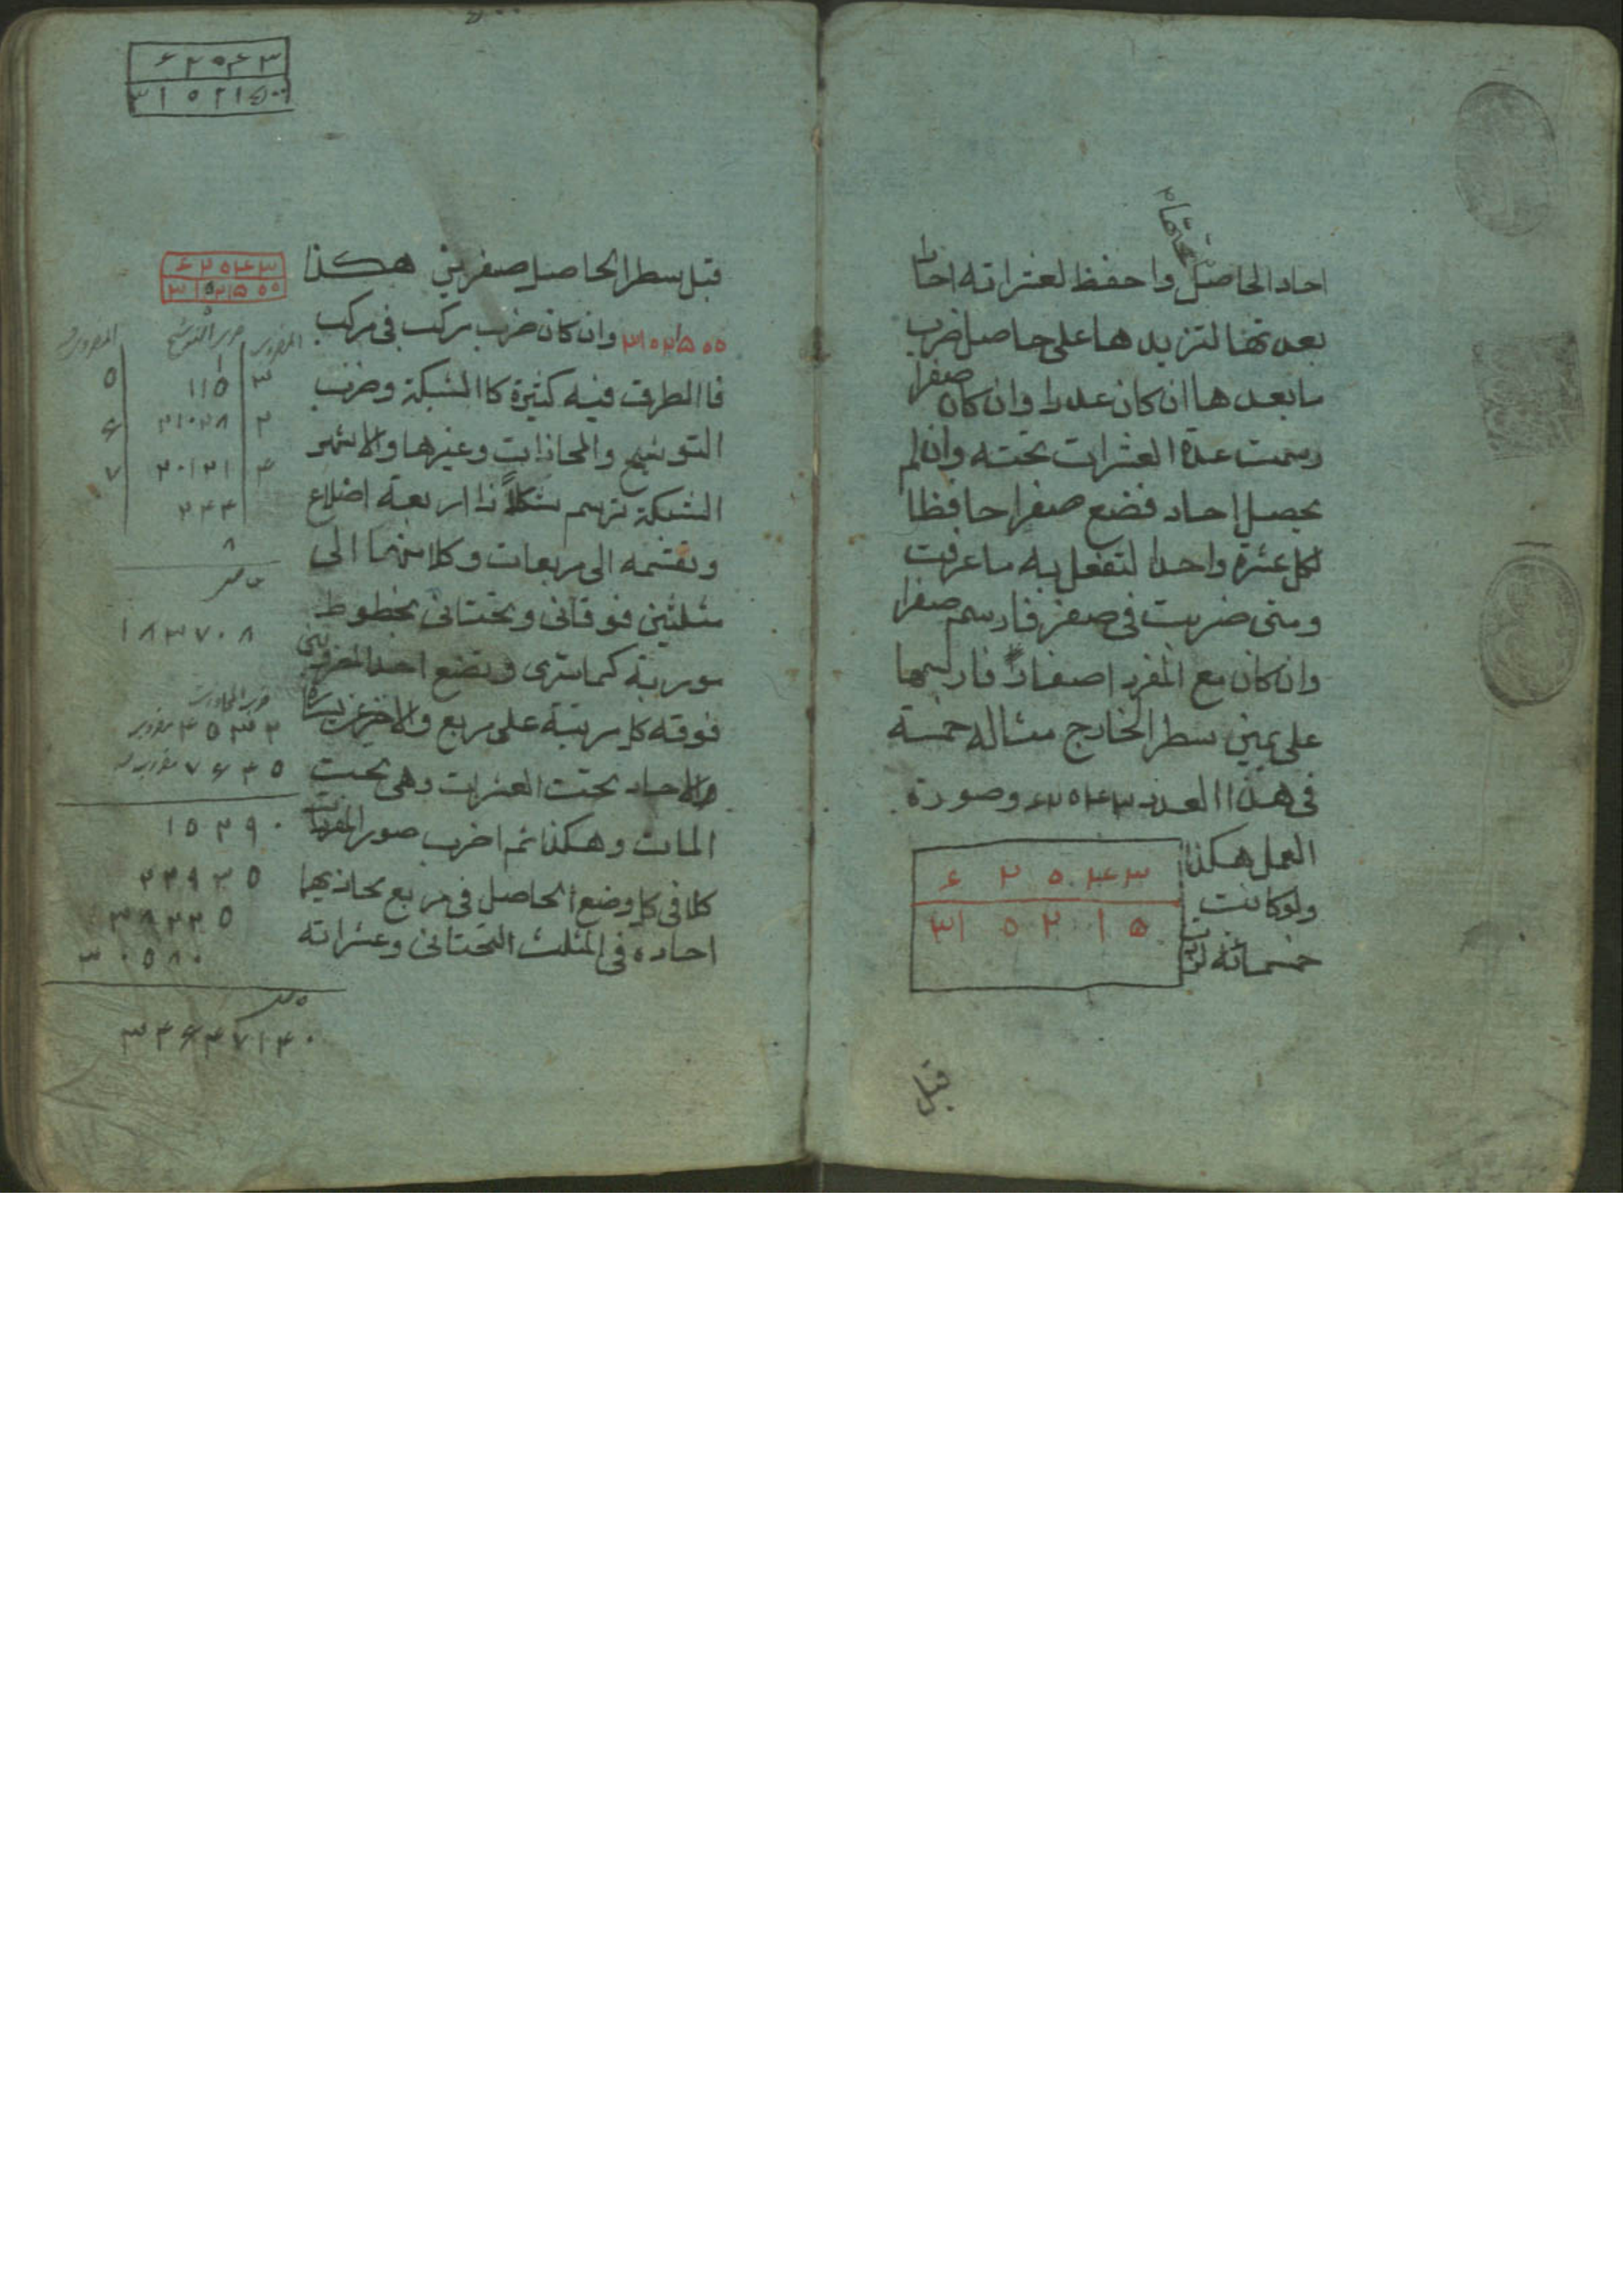 احاد الحاصل واحفظ لعشراته احادا
بعدتها لتزيدها على حاصل ضرب
ما بعدها ان كان عددا وان كان صفرا
رسمت عدة العشرات تحته وان لم
يحصل احاد فضع صفرا حافظا
لكل عشرة واحدا لتفعل به ما عرفت
ومتى ضربت فى صفر فارسم صفرا
وان كان مع المفرد اصفارا فارسمها
على يمين سطر الخارج مثاله خمسة
فى هذا العدد ۶۲۵۴۳ وصورة
العمل هكذا
ولو كانت
خمسمائة
۶ ۲ ۵ ۴ ۳
۳۱ ۵ ۲ ۱ ۵
قبل
۶ ۲ ۵ ۴ ۳
قبل سطر الحاصل صفرين هكذا
۳۱۵۲۱۵۰۰ وان كان ضرب مركب فى مركب
فاالطرق فيه كثيرة كاالشبكة وضرب
التوشيح والمحاذات وغيرها والاشهر
الشبكة ترسم شكلاً ذا اربعة اضلاع
وتقسمه الى مربعات وكلا منهما الى
مثلثين فوقانى وتحتانى بخطوط
موربة كما سترى وتضع احد المضروبين
فوقه كل مرتبة على مربع والاخر عن يساره
والاحاد تحت العشرات وهى تحت
المات وهكذا ثم اضرب صور المفردات
كلا فى كل وضع الحاصل فى مربع يحاذيهما
احاده فى المثلث التحتانى وعشراته
۶ ۲ ۵ ۴ ۳
۳ ۱ ۵ ۲ ۱ ۵ ۰ ۰
المضروب ضرب التوشيح
۳ ۱۱۵ ۵
۱ ۸ ۳ ۷ ۰ ۸
۱ ۵ ۲ ۹ ۰
۳ ۰ ۵ ۸ ۰